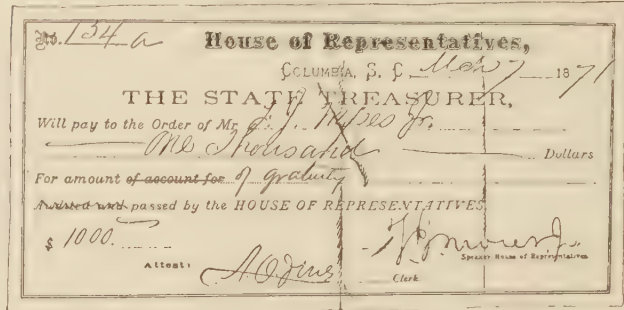 No. 154 a House of Representatives,
COLUMBIA, S. C. Mch 7 1871
THE STATE TREASURER,
Will pay to the Order of Mr. F. J. Moses Jr.
One Thousand Dollars
For amount of account for of gratuity
Audited and passed by the HOUSE OF REPRESENTATIVES.
$ 1000.
F. J. Moses Jr.
Speaker House of Representatives
Attest: A. O. Jones
Clerk